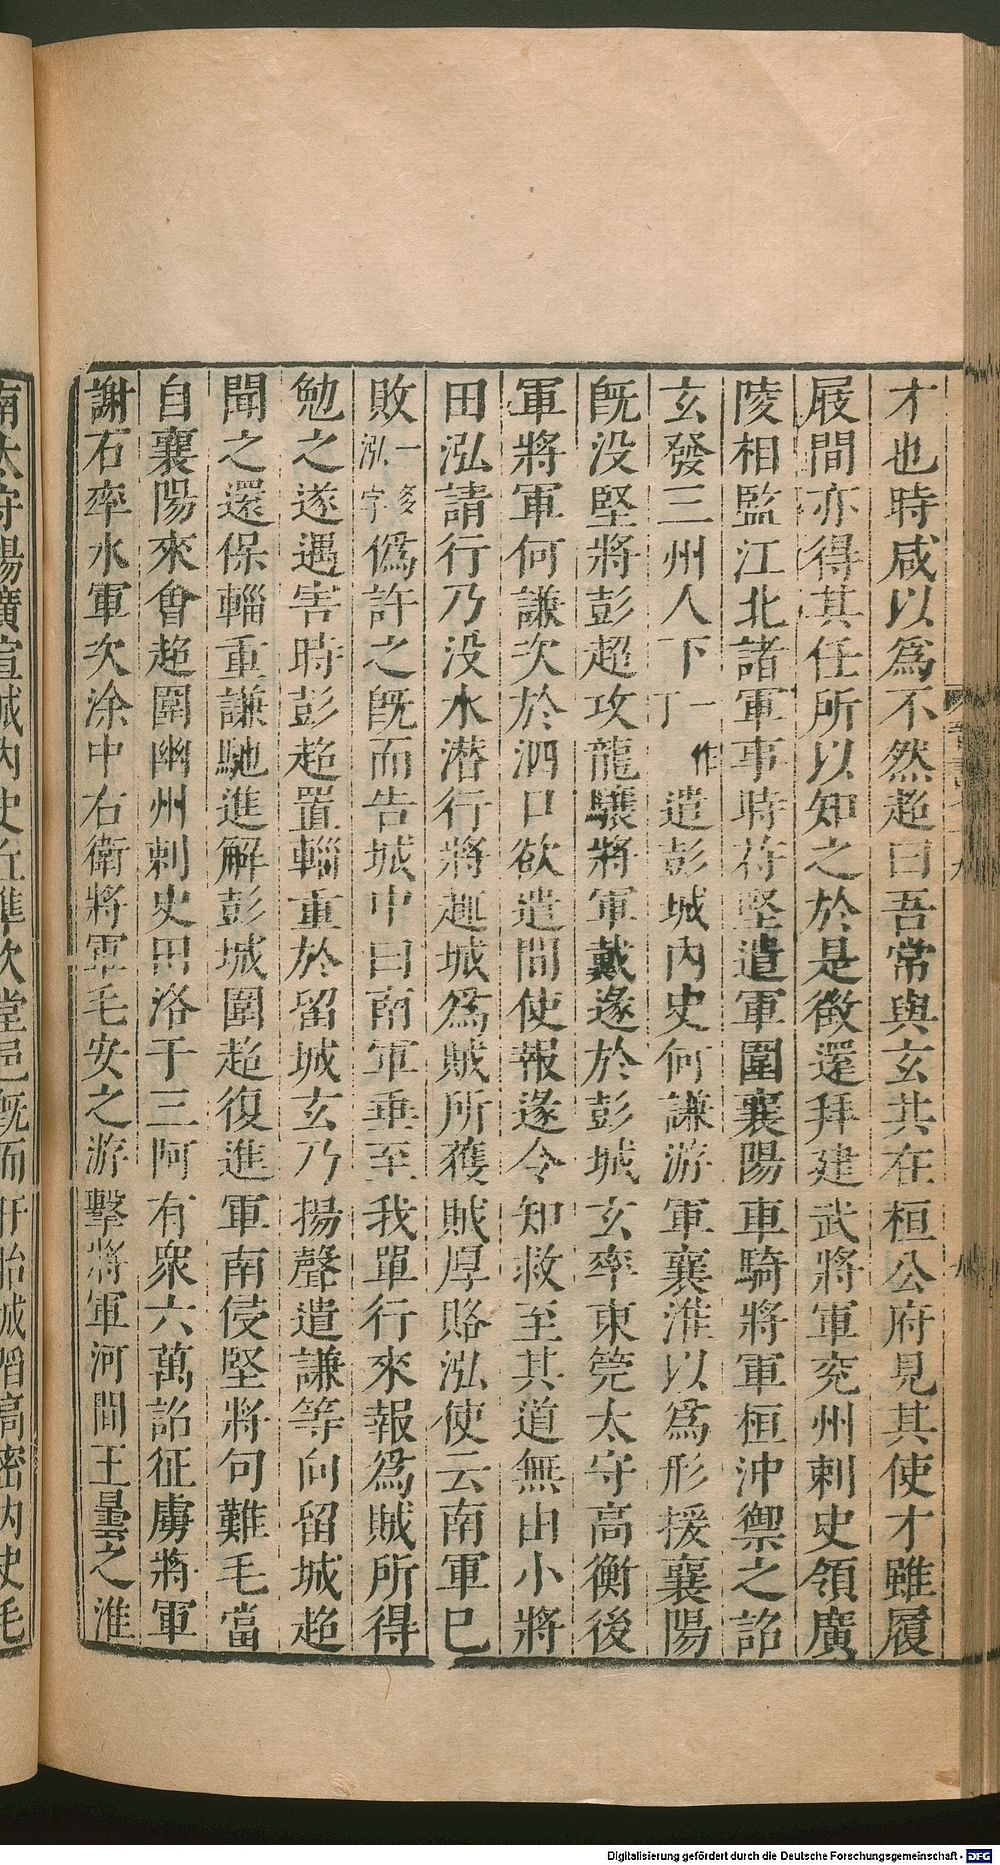 才也時咸以爲不然超曰吾常與玄共在桓公府見其使才雖履
屐間亦得其任所以知之於是徵還拜建武將軍兖州刺史領廣
陵相監江北諸軍事時苻堅遣軍圍襄陽車騎將軍桓沖禦之詔
玄發三州人下一作丁遣彭城內史何謙游軍襄淮以爲形援襄陽
旣没堅將彭超攻龍驤將軍戴遂於彭城玄率東筦太守高衡後
軍將軍何謙次於泗口欲遣間使報遂令知救至其道無由小將
田泓請行乃没水潜行將趣城爲賊所獲賊厚賂泓使云南軍已
敗一多泓字僞許之旣而告城中曰南軍垂至我單行來報爲賊所得
勉之遂遇害時彭超置輜重於留城玄乃揚聲遣謙等向留城超
聞之還保輜重謙馳進解彭城圍超復進軍南侵堅將句難毛當
自襄陽來會超圍幽州刺史田洛于三阿有衆六萬詔征虜將軍
謝石率水軍次涂中右衛將軍毛安之游擊將軍河間王曇之淮
南太守楊廣宣城內史丘準次堂邑旣而盱眙城陷高密內史毛
Digitalisierung gefördert durch die Deutsche Forschungsgemeinschaft - DFG